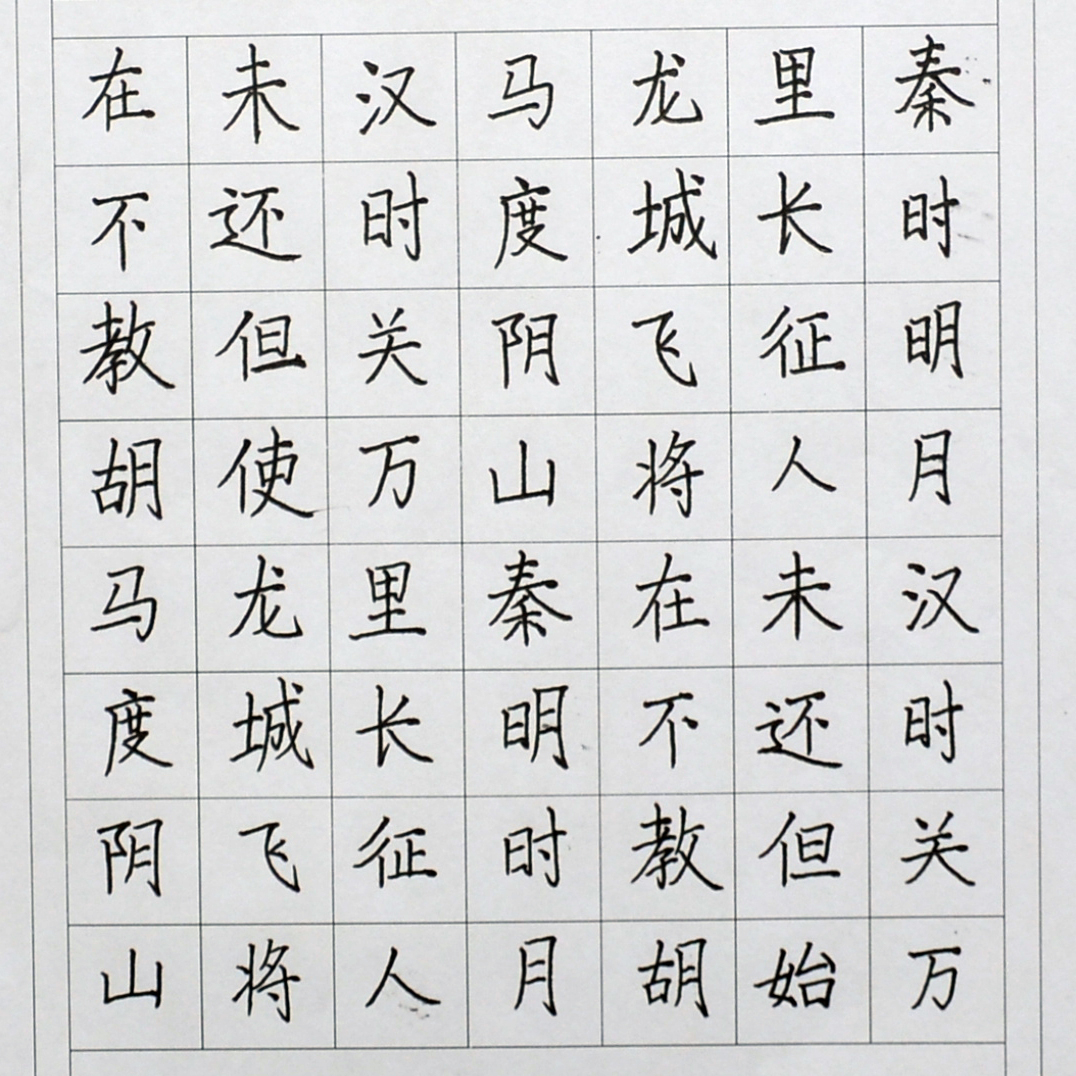 秦时明月汉时关万
里长征人未还但始
龙城飞将在不教胡
马度阴山秦明时月
汉时关万里长征人
未还但使龙城飞将
在不教胡马度阴山